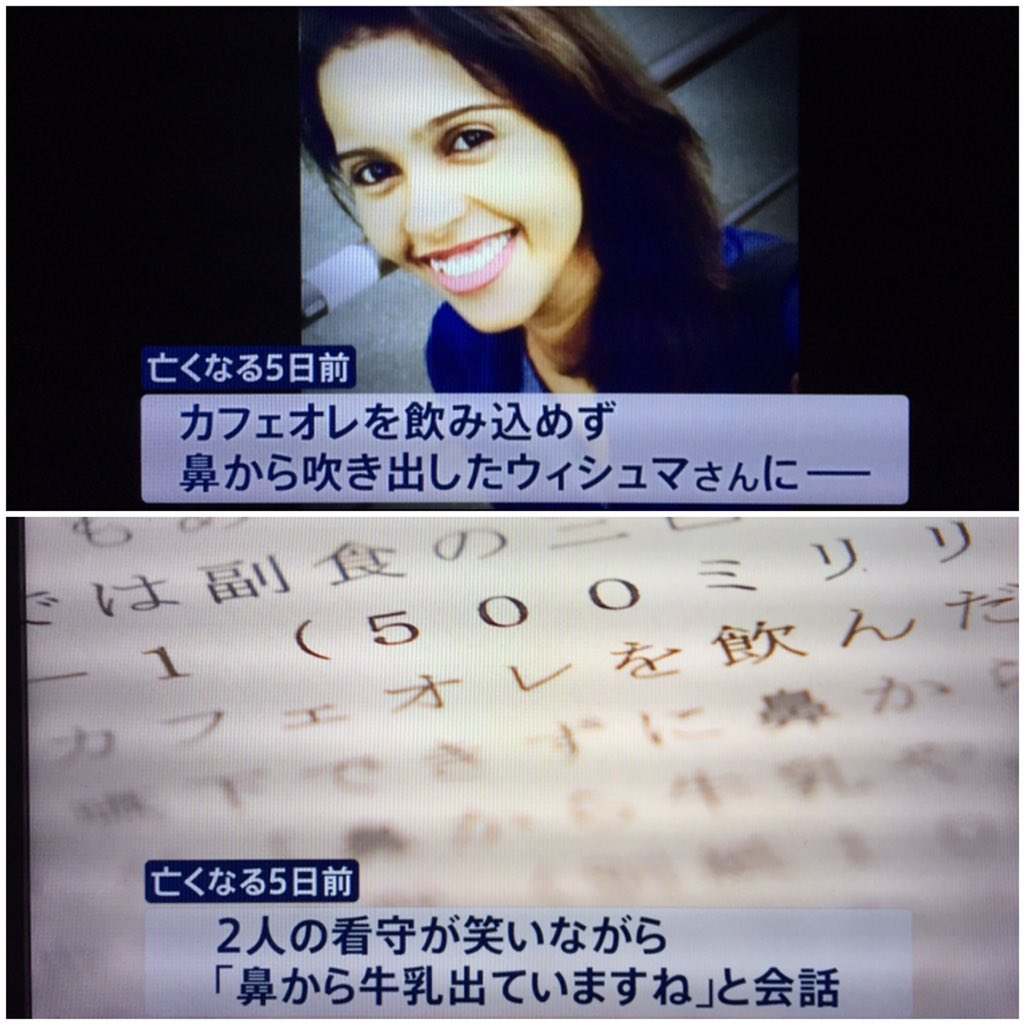 亡くなる5日前
カフェオレを飲み込めず
鼻から吹き出したウィシュマさんに──
では副食の
1（500ミリリ
カフェオレを飲んだ
下できずに鼻から
鼻から牛乳や
亡くなる5日前
2人の看守が笑いながら
「鼻から牛乳出ていますね」と会話